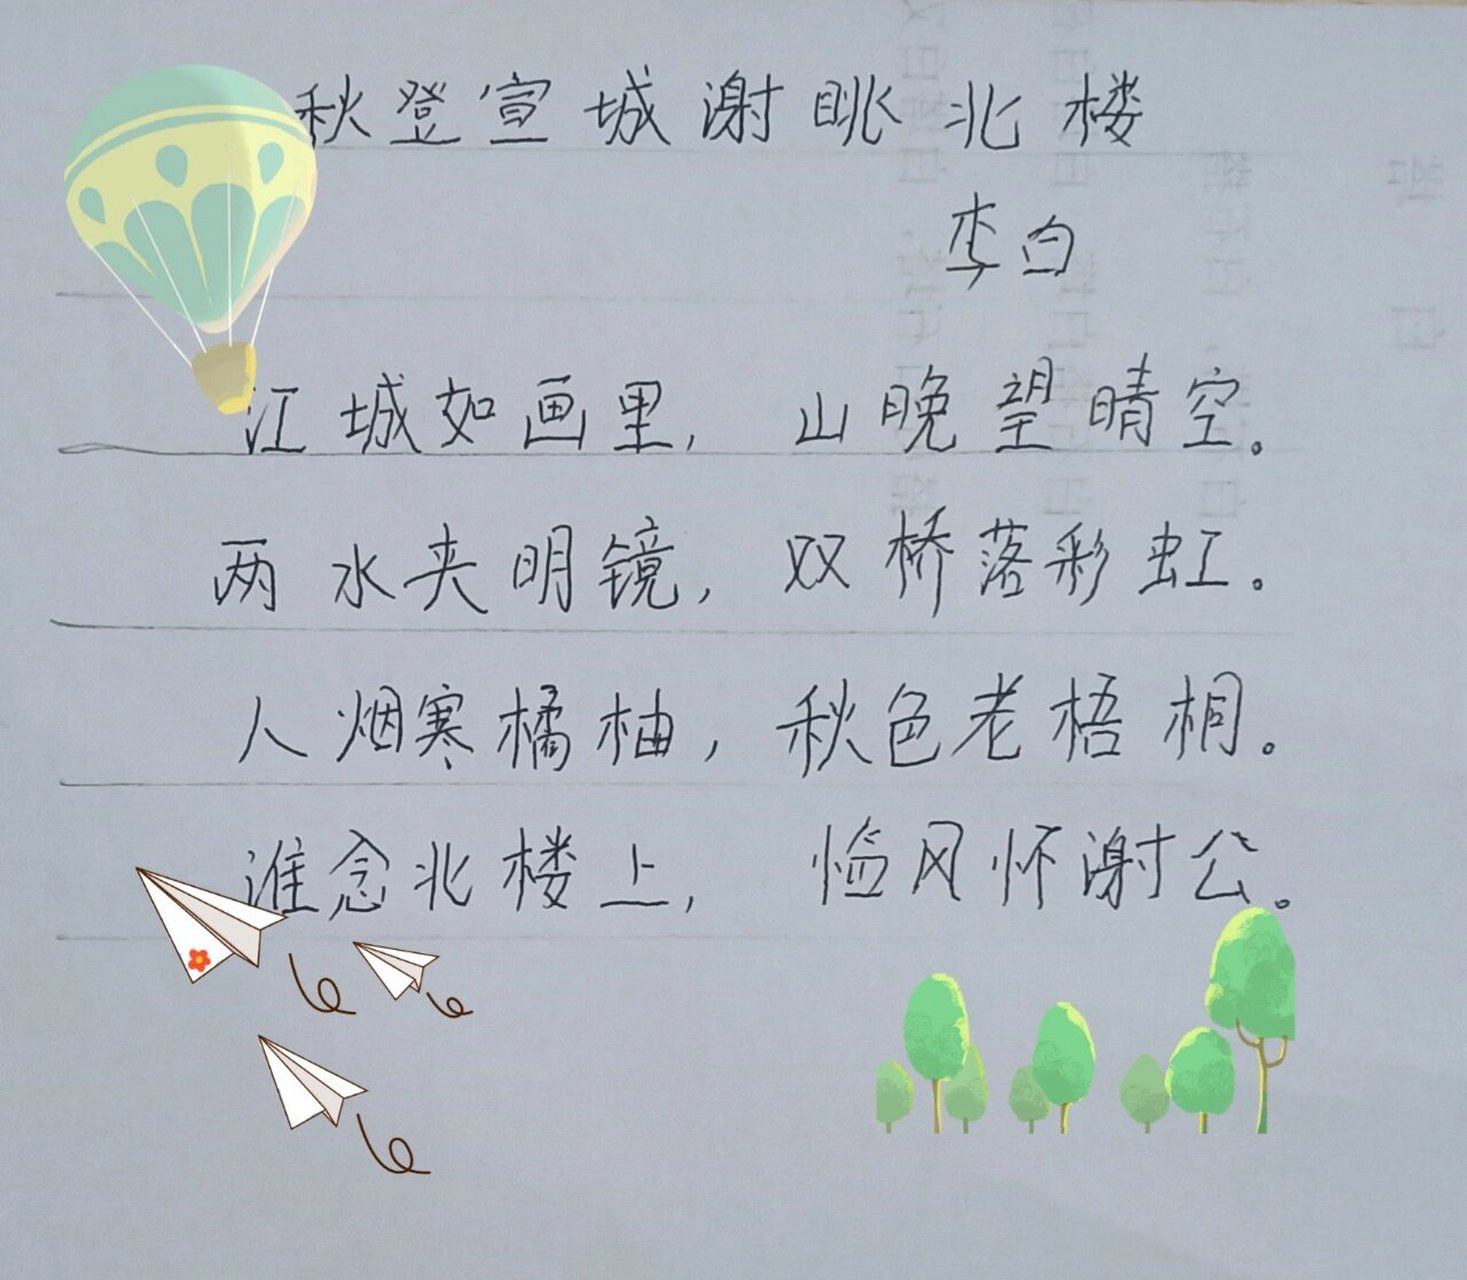 秋登宣城谢眺北楼
李白
江城如画里，山晚望晴空。
两水夹明镜，双桥落彩虹。
人烟寒橘柚，秋色老梧桐。
谁念北楼上，临风怀谢公。